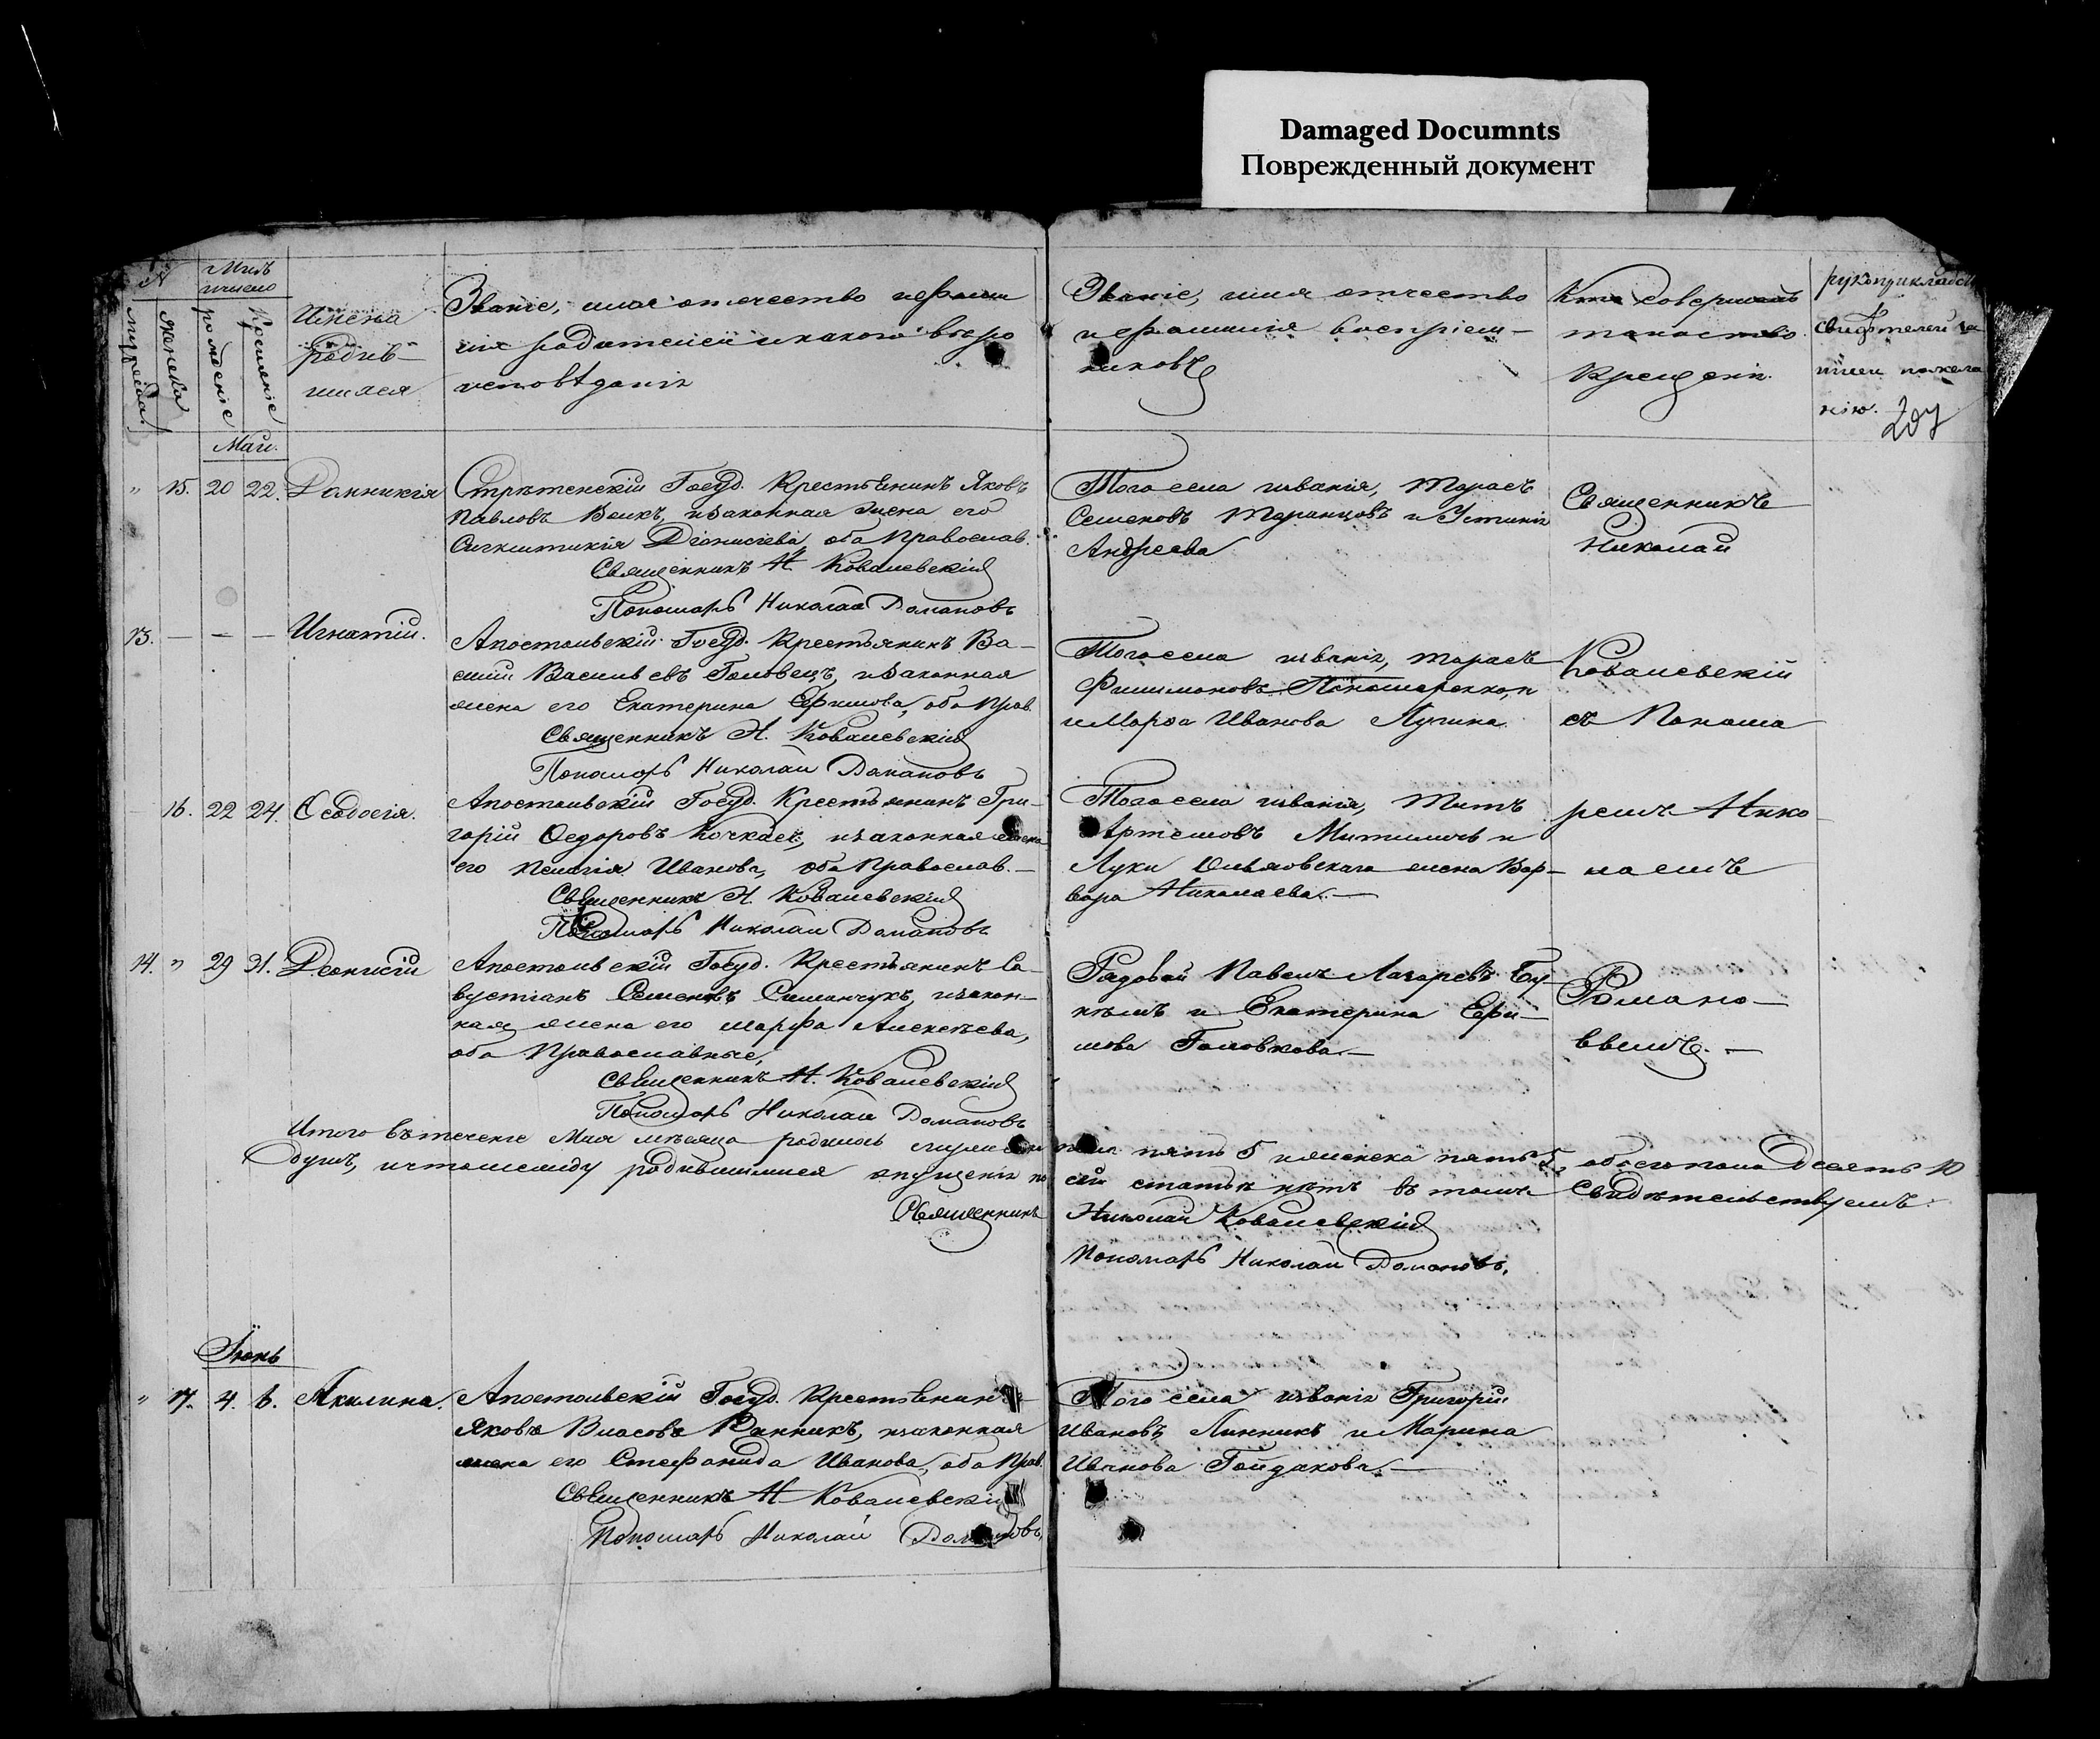 Damaged Documnts
Поврежденный документ
№
число
мужеска
женска
рожденіе
крещеніе
Имена
родив-
шихся
Званіе, имя отечество и фамил
іи родителей и какого вѣро
исповѣданія
Званіе, имя отчество
и фамилія воспріем-
никовъ
Кто совершалъ
таинство
крещенія.
рукоприкладст
свидѣтелей за
писи по жела
нію. 207
Маи.
" 15. 20 22. Домникія
Стрѣтенскій Госуд. Крестьенинъ Яковъ
Павловъ Волкъ, изаконная жена его
Діонисіева оба православ.
Священникъ Н. Ковалевскій
Пономарь Николай Домановъ
Того села и званія, Тарасъ
Семеновъ Таранцовъ и Устинія
Андреева
Священникъ
Николай
13. — — — Игнатій.
Апостольскій Госуд. Крестьянинъ Ва-
силій Васильевъ Головецъ, изаконная
жена его Екатерина Ефимова, оба прав.
Священникъ Н. Ковалевскій
Пономарь Николай Домановъ
Того села и званія, Тарасъ
Филимоновъ Пономаренко, и
и Марѳа Иванова Лугина
Ковалевскій
съ Понома
— 16. 22 24. Ѳеодосія.
Апостольскій Госуд. Крестьянинъ Гри-
горій Ѳедоровъ Кочкаекъ, изаконная жена
его Пелагія Иванова, оба православ.—
Священникъ Н. Ковалевскій
Пономарь Николай Домановъ
Того села и званія, Титъ
Артемовъ и
Луки жена Вар-
вара Николаева.—
ремъ Нико
лаемъ
14. " 29 31. Деонисій
Апостольскій Госуд. Крестьянинъ Са-
вустіанъ Семеновъ Симанчукъ, изакон-
ная жена его Марфа Алексѣева,
оба Православные,
Священникъ Н. Ковалевскій
Пономарь Николай Домановъ
Рядовой Павелъ Лазаревъ
и Екатерина Ефи-
мова Головкова.—
Домано-
ввымъ.—
Итого въ теченіе Мая мѣсяца родилось мужеска пола пять 5 и женска пять 5, обоего пола десять 10
душъ, и что между родившимися опущенія по сей статьи нѣтъ въ томъ свидѣтельствуемъ.
Священникъ Николай Ковалевскій
Пономарь Николай Домановъ.
Іюнь
" 17. 4. 6. Акилина.
Апостольскій Госуд. Крестьенинъ
Яковъ Власовъ Ранникъ, изаконная
жена его Стефанида Иванова, оба прав.
Священникъ Н Ковалевскій
Пономарь Николай Домановъ,
Того села и званія Григорій
Ивановъ Линникъ и Марина
Иванова Гойдакова.—